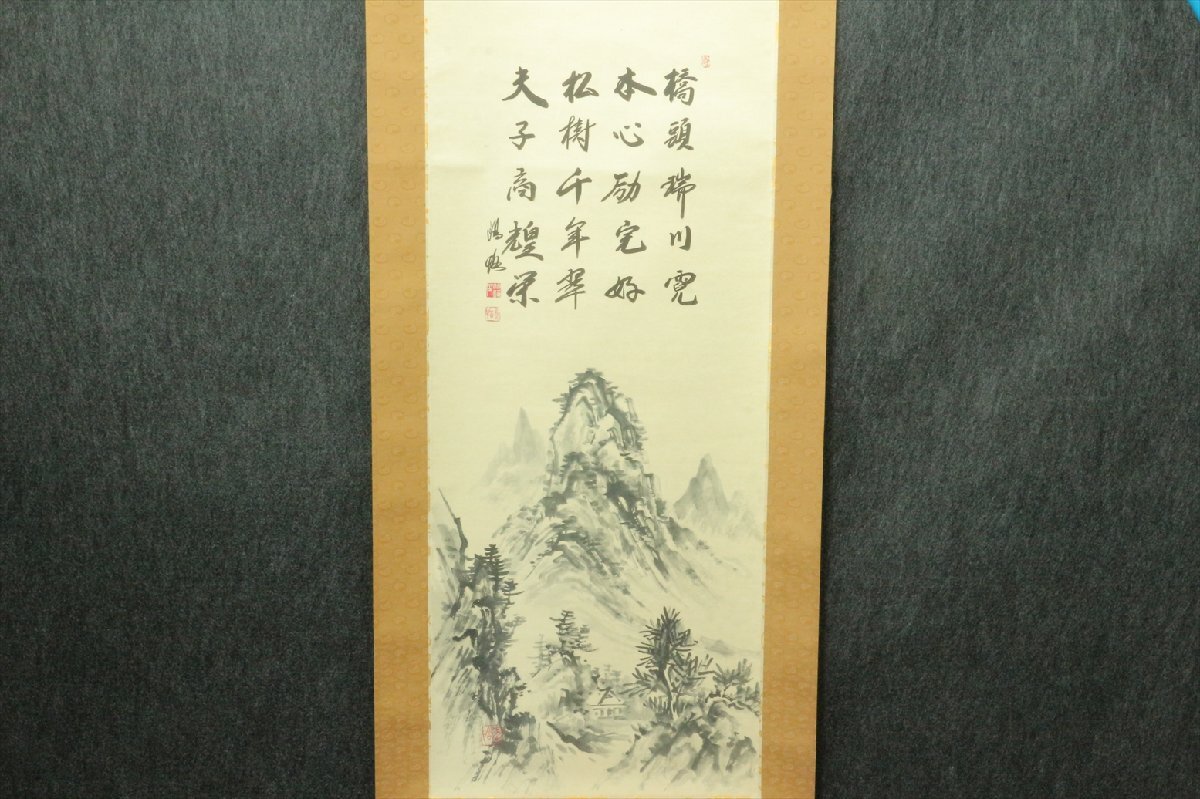 橋頭瑞川霓
本心励完好
松樹千年翠
夫子高輝栄